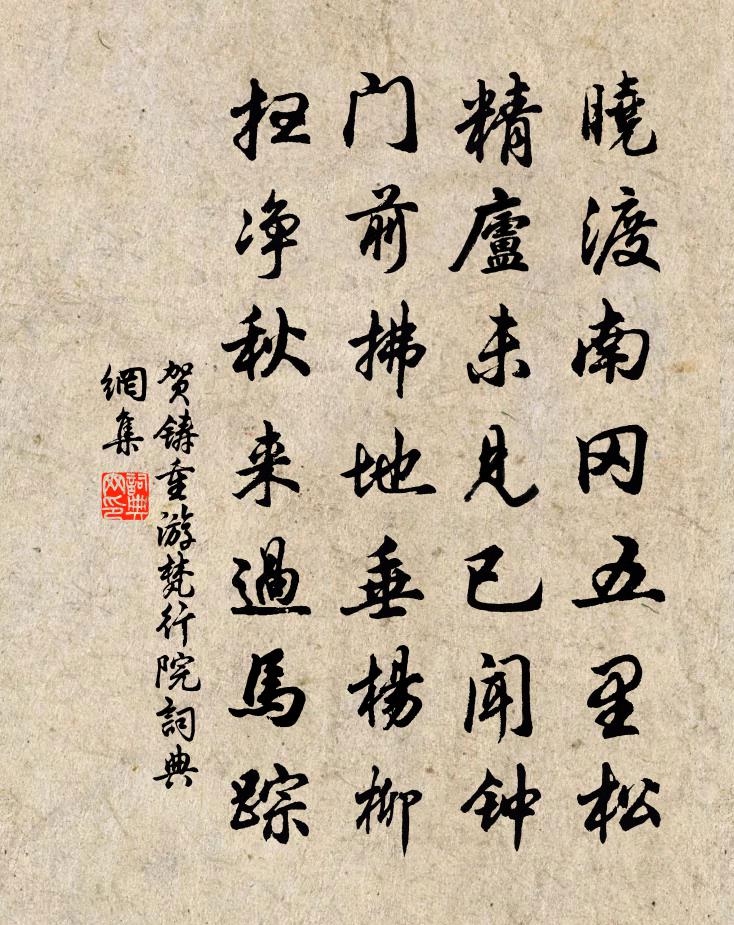 曉渡南冈五里松
精廬未见已闻钟
门前拂地垂楊柳
扫净秋来過馬踪
贺铸重游梵行院詞典
網集
詞典
网印